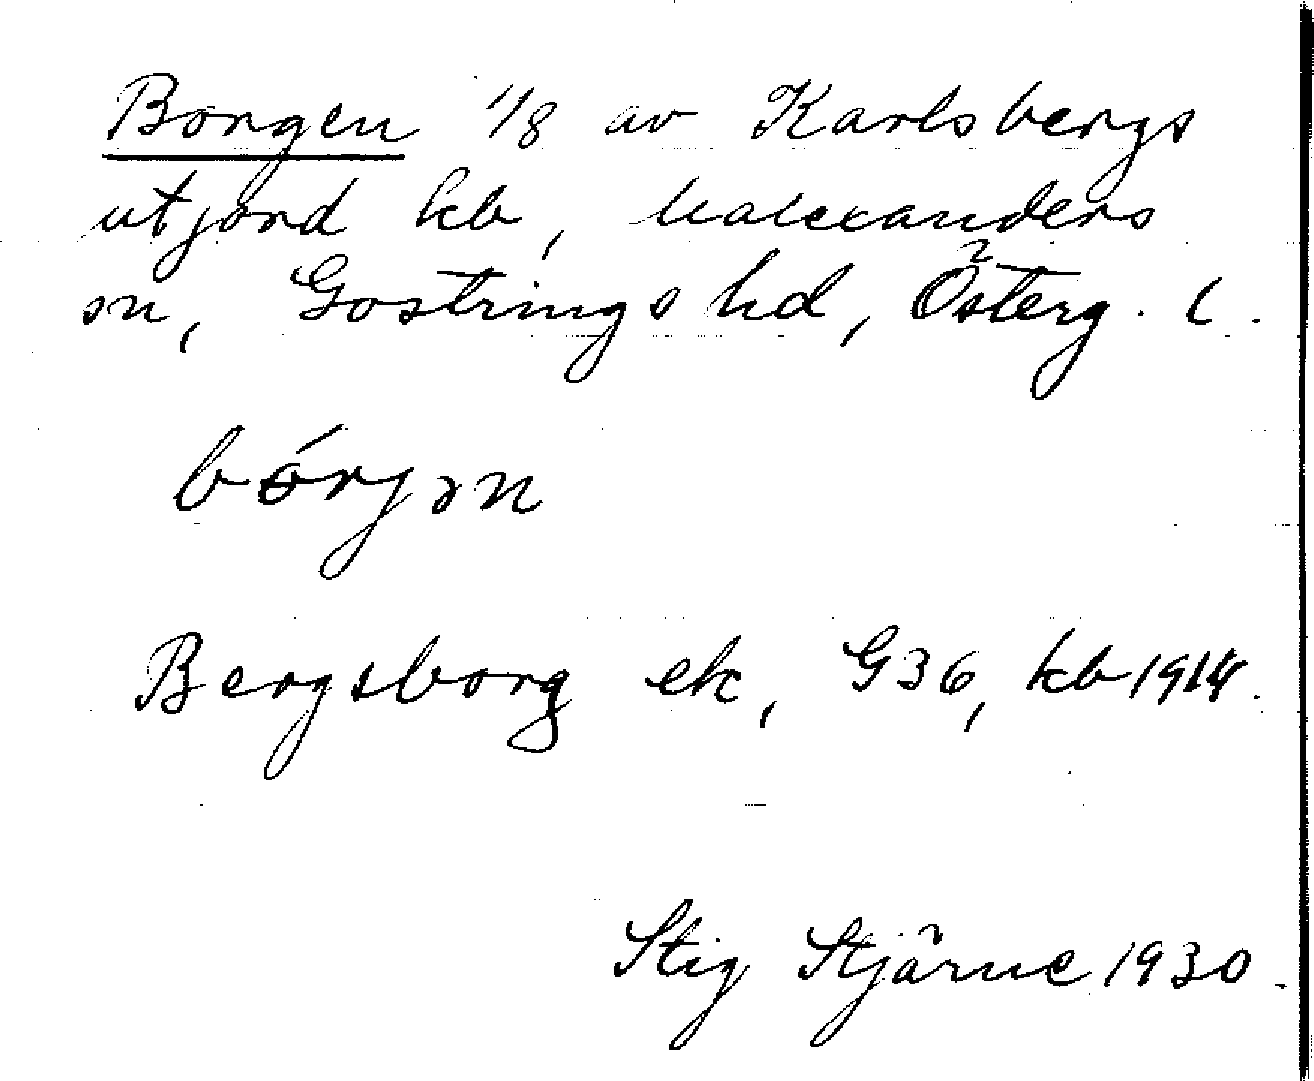 Borgen 1/8 av Karlsbergs
utjord kb, Kalexanders
sn, Gostrings hd, Österg. l.
bórjən
Bergsborg ek, G36, kb 1914.
Stig Stjärne 1930.